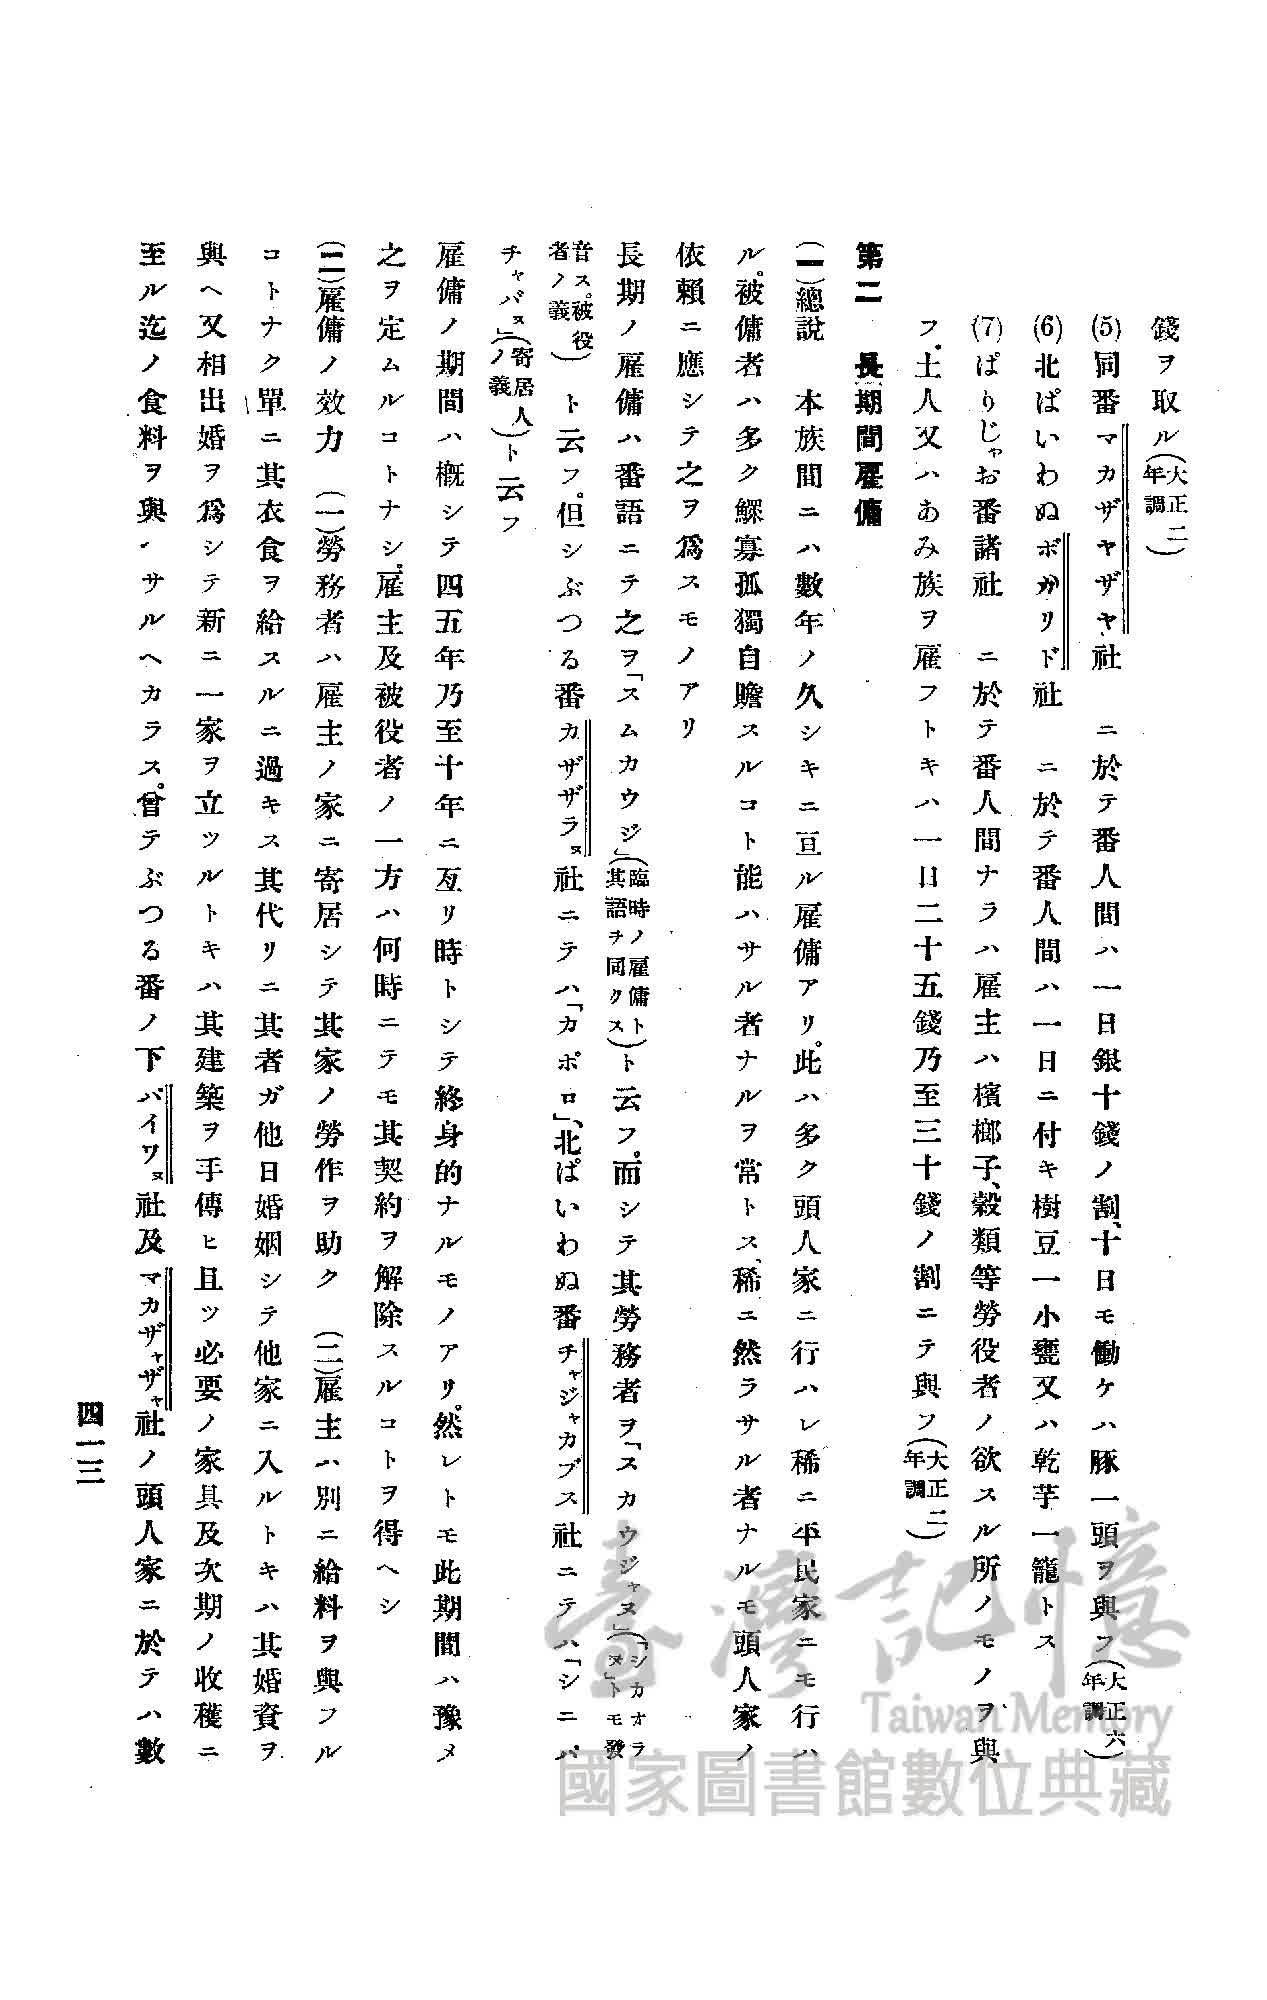 錢ヲ取ル(大正二年調)
(5)同番マカザヤザヤ社　ニ於テ番人間ハ一日銀十錢ノ割、十日モ働ケハ豚一頭ヲ與フ(大正六年調)
(6)北ぱいわぬボガリド社　ニ於テ番人間ハ一日ニ付キ樹豆一小甕又ハ乾芋一籠トス
(7)ぱりじゃお番諸社　ニ於テ番人間ナラハ雇主ハ檳榔子、穀類等勞役者ノ欲スル所ノモノヲ與
フ、土人又ハあみ族ヲ雇フトキハ一日二十五錢乃至三十錢ノ割ニテ與フ(大正二年調)
第二　長期間雇傭
(一)總說　本族間ニハ數年ノ久シキニ亘ル雇傭アリ。此ハ多ク頭人家ニ行ハレ稀ニ平民家ニモ行ハ
ル。被傭者ハ多ク鰥寡孤獨自贍スルコト能ハサル者ナルヲ常トス、稀ニ然ラサル者ナルモ頭人家ノ
依賴ニ應シテ之ヲ爲スモノアリ
長期ノ雇傭ハ番語ニテ之ヲ「スムカウジ」(臨時ノ雇傭ト其語ヲ同クス)ト云フ。而シテ其勞務者ヲ「スカウジャヌ」(「シカオラヌ」トモ發
音ス。被役者ノ義)ト云フ。但シぶつる番カザザラヌ社ニテハ「カボロ」、北ぱいわぬ番チャジャカブス社ニテハ「シニパ
チャバヌ」(寄居人ノ義)ト云フ
雇傭ノ期間ハ槪シテ四五年乃至十年ニ亙リ時トシテ終身的ナルモノアリ。然レトモ此期間ハ豫メ
之ヲ定ムルコトナシ。雇主及被役者ノ一方ハ何時ニテモ其契約ヲ解除スルコトヲ得ヘシ
(二)雇傭ノ效力　(一)勞務者ハ雇主ノ家ニ寄居シテ其家ノ勞作ヲ助ク　(二)雇主ハ別ニ給料ヲ與フル
コトナク單ニ其衣食ヲ給スルニ過キス其代リニ其者ガ他日婚姻シテ他家ニ入ルトキハ其婚資ヲ
與ヘ又相出婚ヲ爲シテ新ニ一家ヲ立ツルトキハ其建築ヲ手傳ヒ且ツ必要ノ家具及次期ノ收穫ニ
至ル迄ノ食料ヲ與ヘサルヘカラス。曾テぶつる番ノ下パイワヌ社及マカザャザャ社ノ頭人家ニ於テハ數
四一三
臺灣記憶
Taiwan Memory
國家圖書館數位典藏